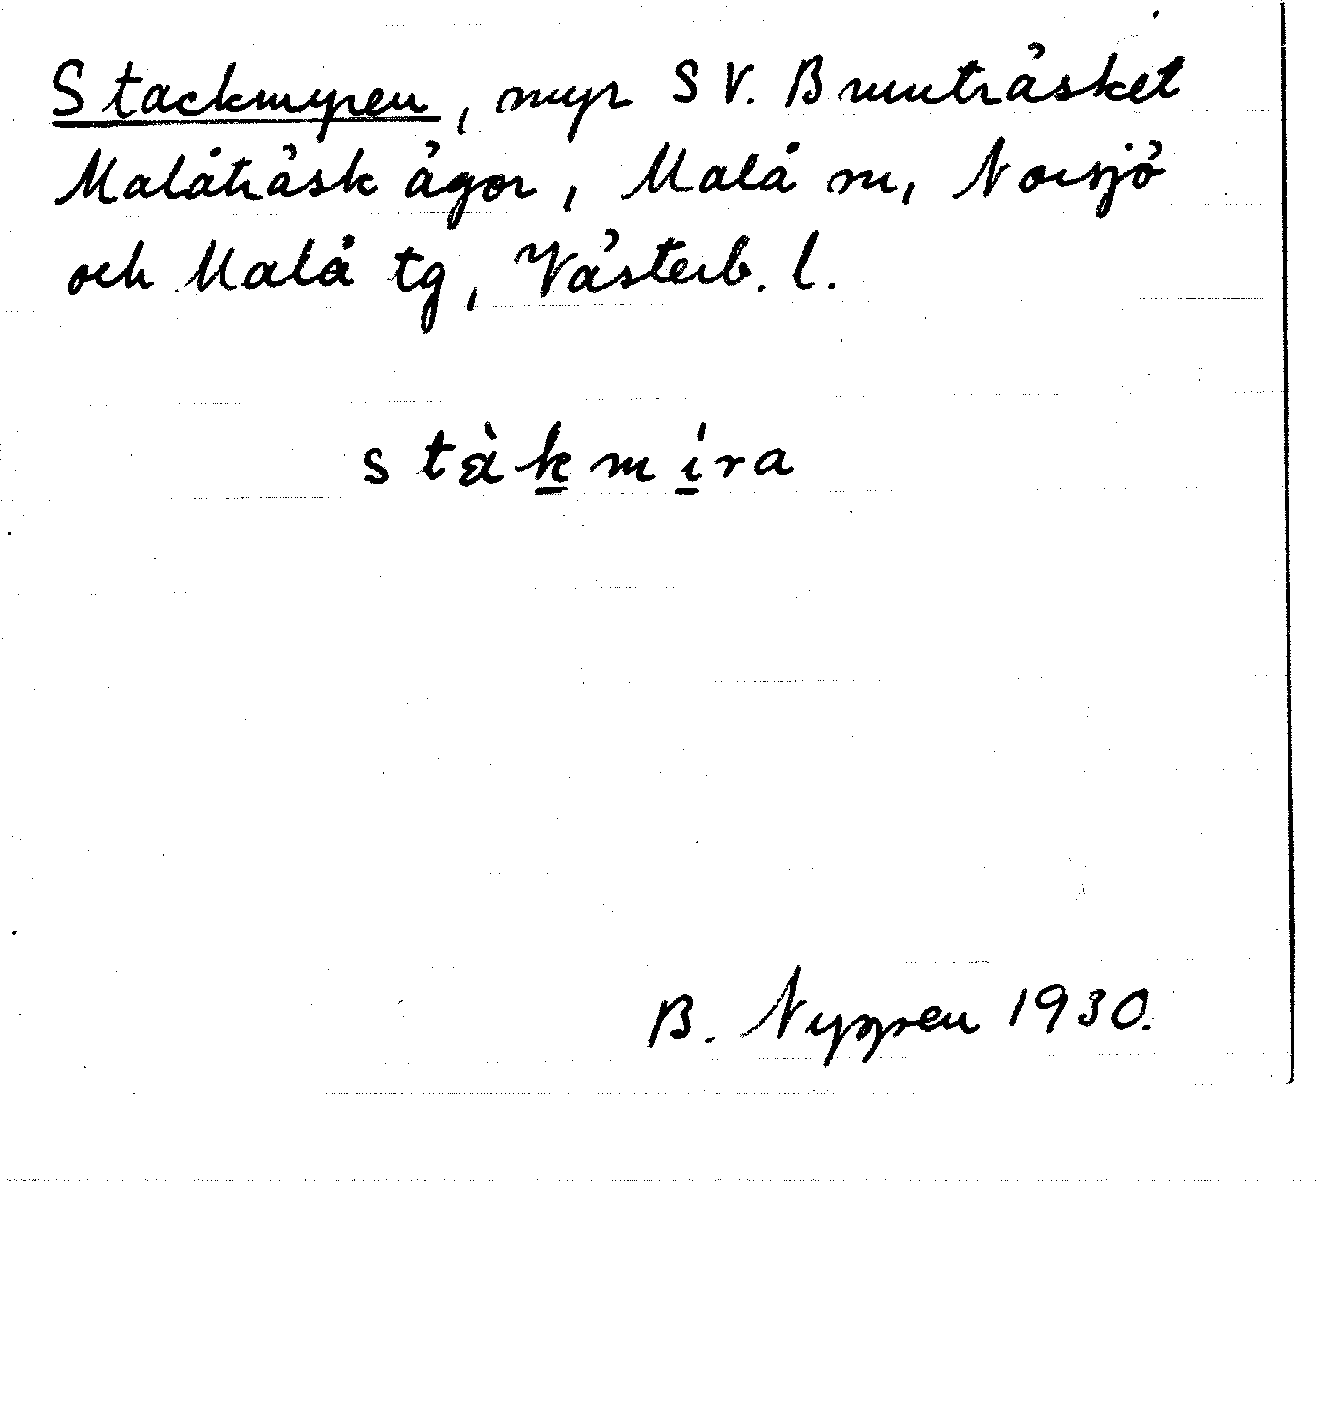 Stackmyren, myr SV. Brunnträsket
Malåträsk ägor, Malå sn, Norsjö
och Malå tg, Västerb. l.
stàkmíra
B. Nygren 1930.